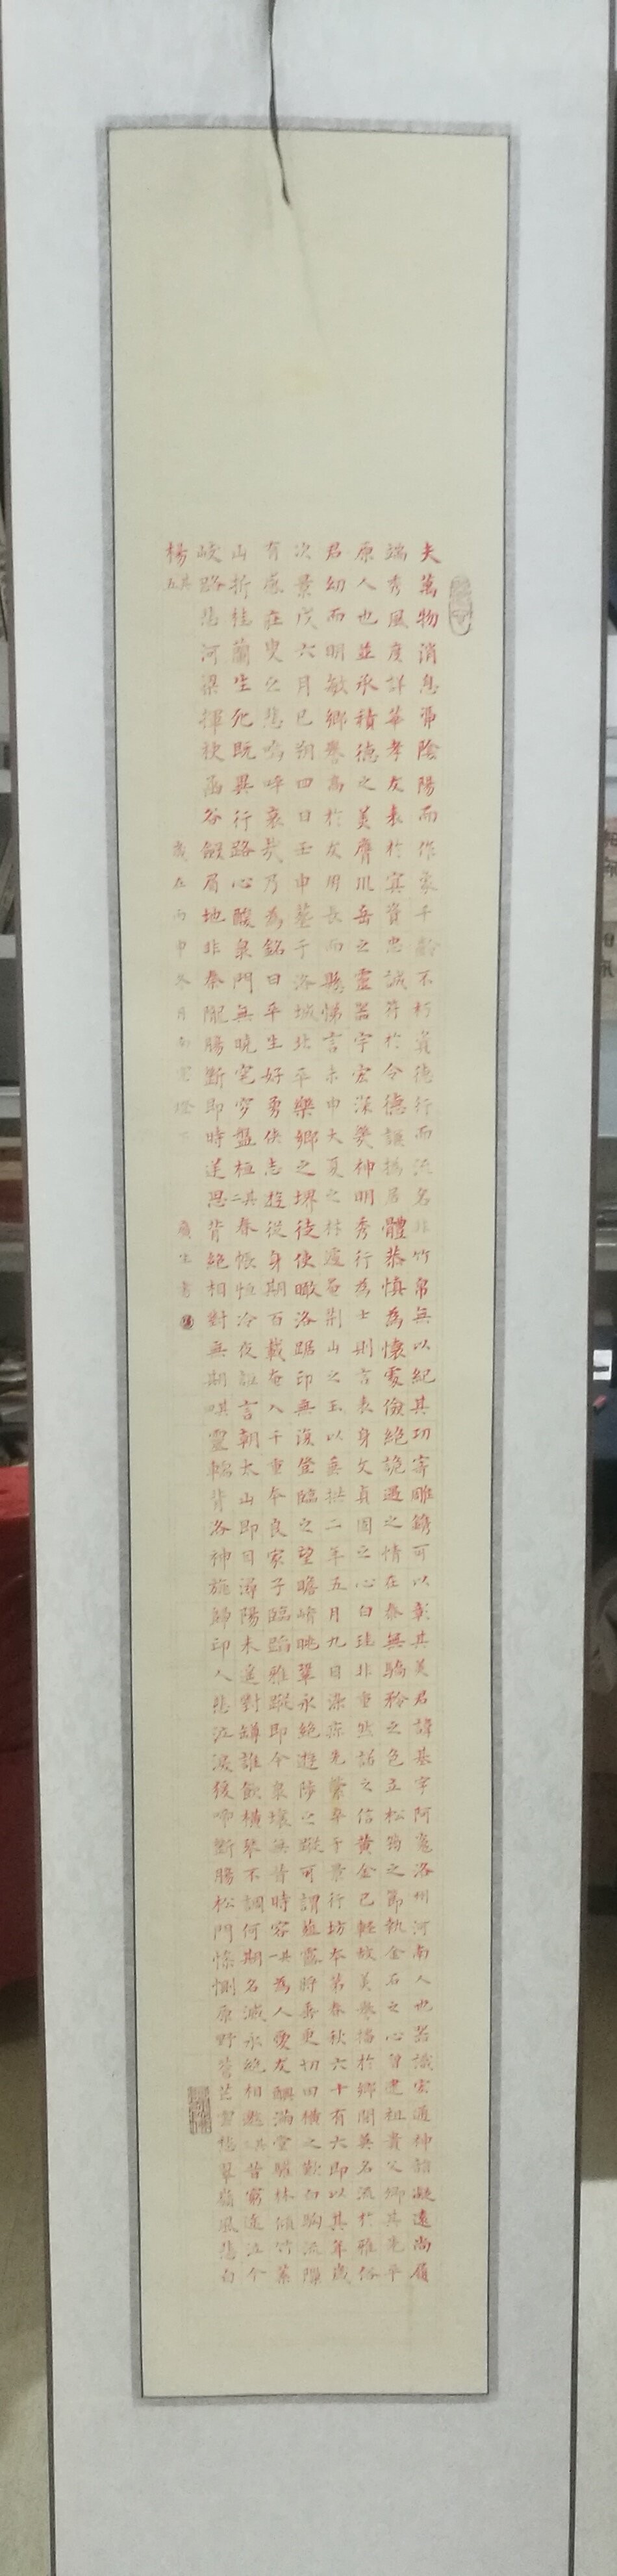 夫萬物消息帶陰陽而作家千齡不朽資德行而流名非竹帛無以紀其功寄雕鐫可以彰其美君諱基字阿寬洛州河南人也器識宏通神韻凝遠尚履
端秀風度詳華孝友表於冥資忠誠符於令德謙撝居體恭慎為懷處儉絕詭遇之情在泰無驕矜之色立松筠之節執金石之心曾建祖貴父卿其先平
原人也並承積德之美膺川岳之靈器宇宏深爽神明秀行為士則言表身文貞固之心白珪非重然諾之信黃金已輕故美譽播於鄉閭英名流於雅俗
君幼而明敏鄉譽高於友朋長而縣悌言未申大夏之材遽芭荆山之玉以垂拱二年五月九日染疾先薨卒于景行坊本第春秋六十有六即以其年歲
次景戌六月己朔四日壬申葬于洛城北平樂鄉之堺徒使瞰洛踞印無復登臨之望瞻崤眺鞏永絕遊陟之蹤可謂薤露將垂更切田横之歎白駒流隙
有感莊叟之悲嗚呼哀哉乃為銘曰平生好勇俠志遊從身期百載奄入千重令良家子臨蹈雅蹤即今泉壤無昔時容其一為人愛友酬滿堂驩林傾竹葉
山折桂蘭生死既異行路心酸泉門無曉宅穸盤桓其二春帳恒冷夜誰言朝太山即目潯陽未遙對罇誰飲横琴不調何期名滅永絕相邀其昔窮途泣今
岐路悲河梁揮袂函谷斂眉地非秦隴腸斷即時迷思背絕相對無期其靈輀背洛神旐歸印人悲泣淚猨啼斷腸松門慘惻原野蒼茫雲愁翠嶺風悲白
楊其五
歲在丙申冬月南窗燈下 廣生書